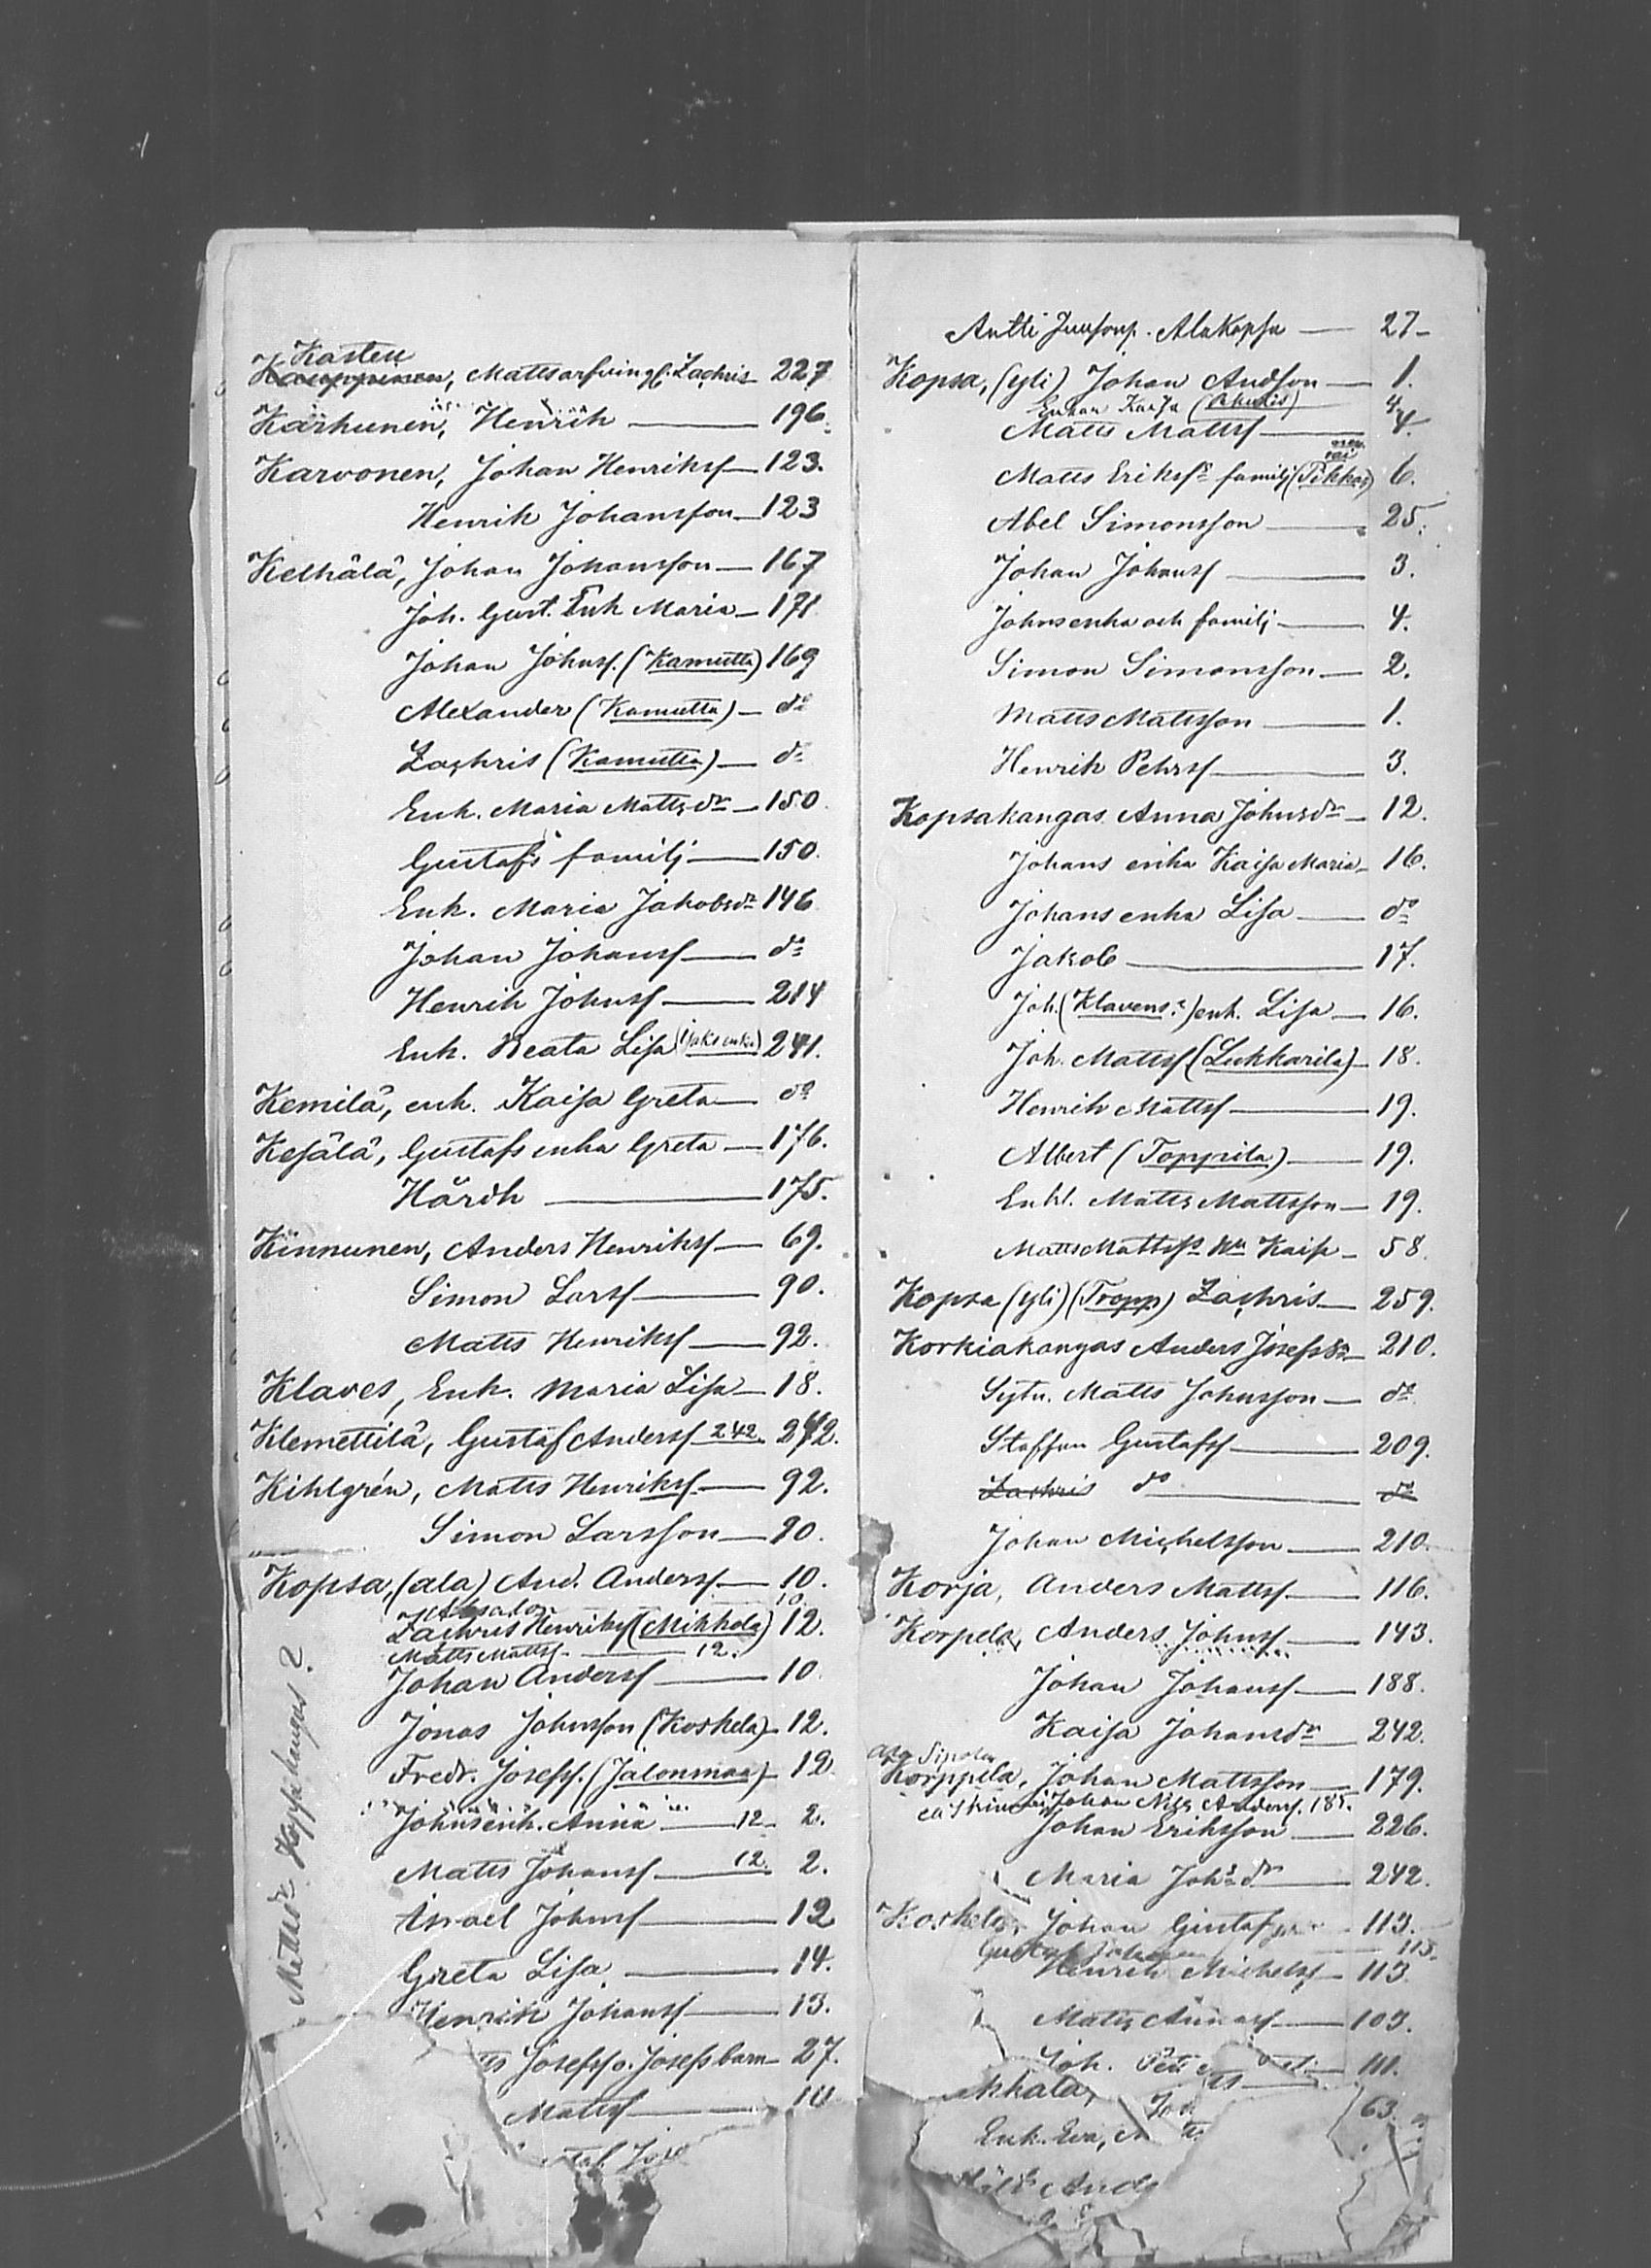 Kasten
Kauppinen, Matts arfvingl. Zachris 227
Karhunen, Henrik — 196.
Karvonen, Johan Henrikss — 123.
Henrik Johansson — 123
Kelhälä, Johan Johansson — 167
Joh. Gust. Enk Maria — 171
Johan Johnss. (Kamutta) 169
Alexander (Kamutta) — do
Zachris (Kamutta) — do
Enk. Maria Matts dr — 150.
Gustafs familj — 150.
Enk. Maria Jakobsdr 146
Johan Johanss — do
Henrik Johnss — 214
Enk. Beata Lisa (Jaks enka) 241.
Kemilä, enk. Kaisa Greta — do
Kesälä, Gustafs enka Greta — 176.
Hårdh — 175.
Kinnunen, Anders Henrikss — 69.
Simon Larss — 90.
Matts Henrikss — 92.
Klaves, Enk. Maria Lisa — 18.
Klemettilä, Gustaf Anderss 242. 242.
Kihlgrén, Matts Henrikss. — 92.
Simon Larsson — 90.
Kopsa, (ala) And. Anderss. — 10.
Absalon 10.
Zachris Henrikss (Mikkola) 12.
Matts Mattss. — 12.
Johan Anderss — 10.
Jonas Johnsson (Koskela) 12.
Fredr. Josefss. (Jalonmaa) 12
Johns enk. Anna — 12 2.
Matts Johanss — 12. 2.
Israel Johnss — 12
Greta Lisa — 14.
Henrik Johanss — 13.
Josefss o. Josefs barn — 27.
Mattss —
Kopsakangas ?
Antti Juusonp. Alakopsa — 27
Kopsa, (yli) Johan Andsson — 1.
Enkan Kaisa 4.
Matts Mattss — 4.
Matts Erikss familj (Pikkar) 6.
Abel Simonsson — 25.
Johan Johanss — 3.
Johns enka och familj — 4.
Simon Simonsson — 2.
Matts Mattsson — 1.
Henrik Pehrss — 3.
Kopsakangas Anna Johnsdr — 12.
Johans enka Kaisa Maria — 16.
Johans enka Lisa — do
Jakob — 17.
Joh. (Klavens) enk. Lisa — 16.
Joh. Mattss (Lukkarila) — 18.
Henrik Mattss — 19.
Albert (Toppila) — 19.
Enkl. Matts Mattsson — 19.
Matts Mattss Kaisa — 58.
Kopsa (yli) (Tropp) Zachris — 259.
Korkiakangas Anders Josefss — 210.
Sytn. Matts Johnsson — do
Staffan Gustafss — 209.
Zachris do — do
Johan Michelsson — 210.
Korja, Anders Mattss. — 116.
Korpela, Anders Johnss — 143.
Johan Johanss — 188.
Kaisa Johansdr — 242.
Sipola
Korppela, Johan Mattsson — 179.
Johan Nils Anderss. 185.
Johan Eriksson — 226.
Maria Johs dr — 242.
Koskela, Johan Gustafss — 113.
Gustaf Johan — 113.
Henrik Michelss — 113.
Matts — 103.
Joh. — 111.
63.
Enk. Eva,
And